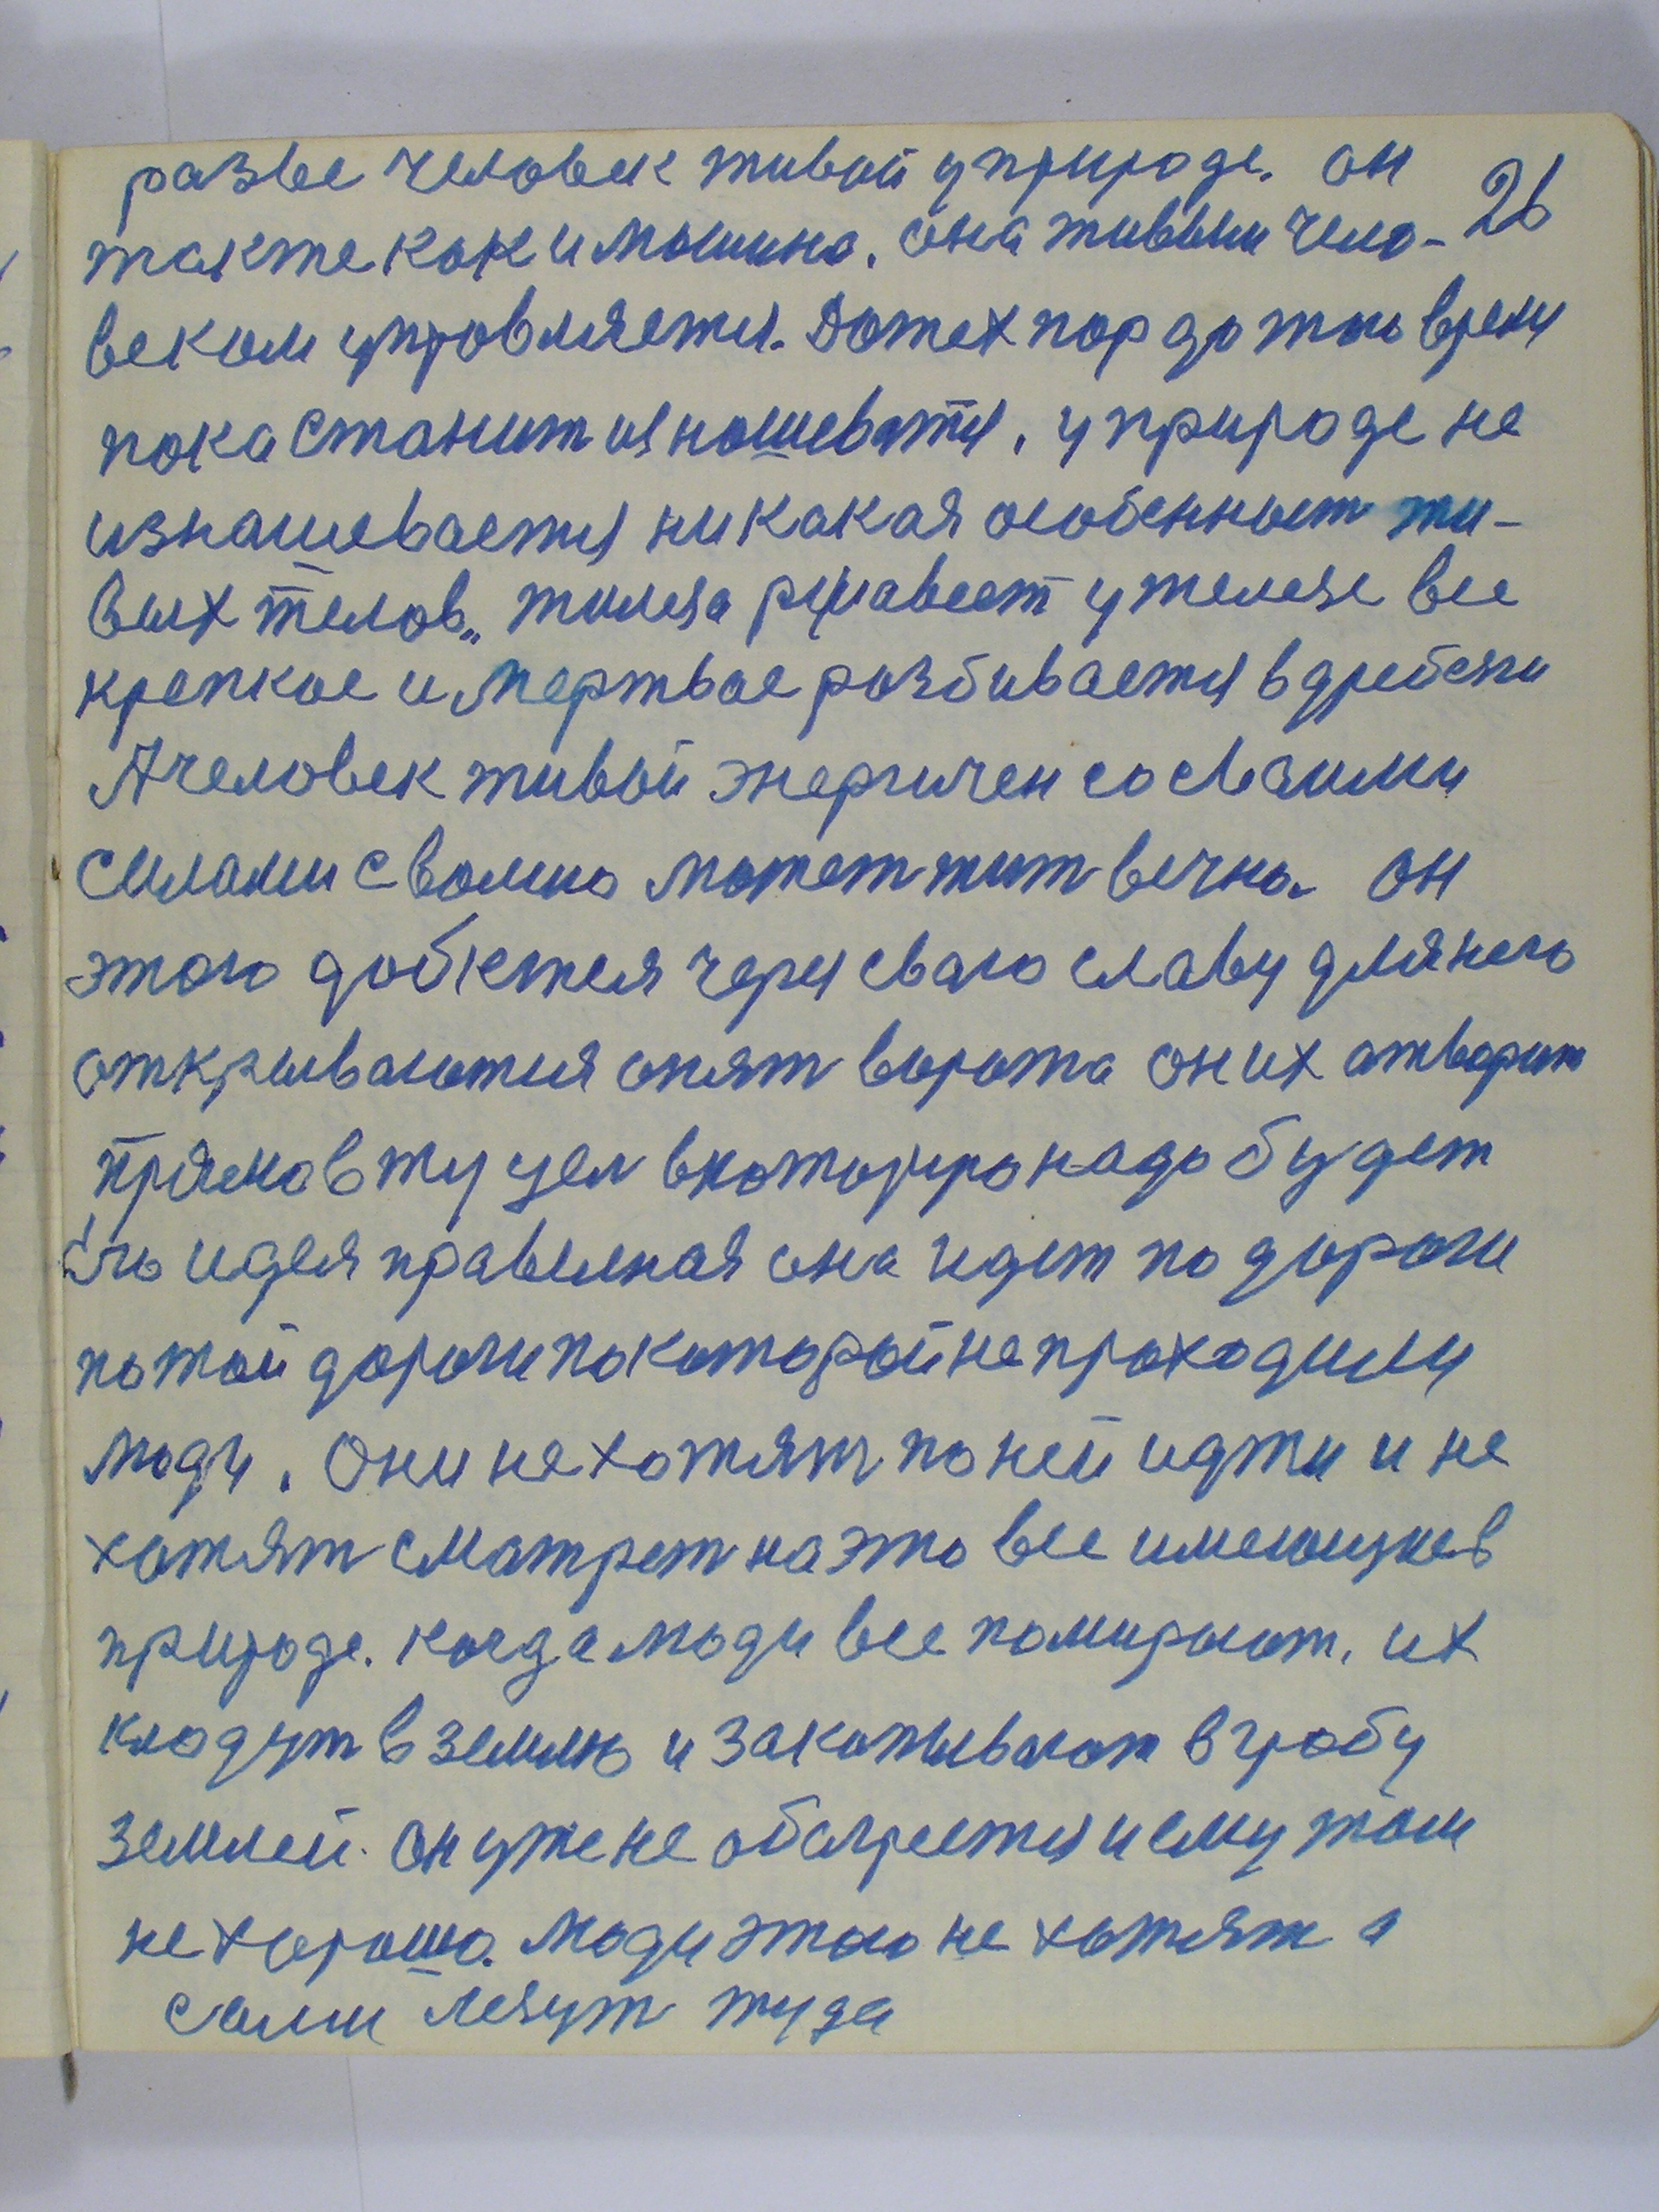 разве человек живой у природе. он
также как и машина. она живым чело- 26
веком управляется. До тех пор до того время
пока станит изнашеватся, у природе не
изнашевается никакая особенност жи-
вых телов. жилеза ржавеет у железе все
крепкое и мертвое розбивается в дребезги
А человек живой энергичен со своими
силами с волию можетжит вечно. он
этого добется через сваю славу для него
открываются опят ворота он их отворит
прямо в ту цел в которую надо будет
Его идея правелная она идет по дороги
по той дороги по которой не проходили
люди. Они не хотят по ней идти и не
хотят сматрет на это все имеющиев
природе. когда люди все помирают. их
кладут в землю и закапывают в гробу
землей. он уже не обагреется и ему там
не хорошо. Люди этого не хотят а
сами лезут туда